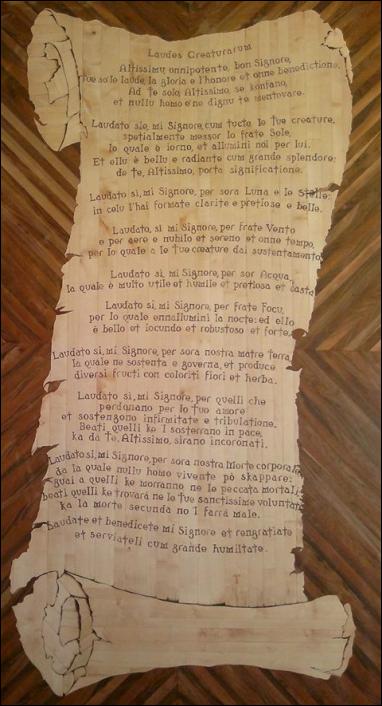 Laudes Creaturarum
Altissimu, onnipotente, bon Signore,
tue so le laude, la gloria e l'honore et onne benedictione.
Ad te solo, Altissimo, se konfano,
et nullu homo ène dignu te mentovare.
Laudato sie, mi Signore, cum tucte le tue creature,
spetialmente messor lo frate Sole,
lo quale è iorno, et allumini noi per lui.
Et ellu è bellu e radiante cum grande splendore:
de te, Altissimo, porta significatione.
Laudato si, mi Signore, per sora Luna e le Stelle:
in celu l'hai formate clarite e pretiose e belle.
Laudato si, mi Signore, per frate Vento
e per aere e nubilo et sereno et onne tempo,
per lo quale a le tue creature dai sustentamento.
Laudato si, mi Signore, per sor Acqua,
la quale è multo utile et humile et pretiosa et casta.
Laudato si, mi Signore, per frate Focu,
per lo quale ennallumini la nocte: ed ello
è bello et iocundo et robustoso et forte.
Laudato si, mi Signore, per sora nostra matre Terra,
la quale ne sostenta e governa, et produce
diversi fructi con coloriti fiori et herba.
Laudato si, mi Signore, per quelli che
perdonano per lo tuo amore
et sostengono infirmitate e tribulatione.
Beati quelli ke 'l sosterrano in pace,
ka da te, Altissimo, sirano incoronati.
Laudato si, mi Signore, per sora nostra Morte corporale,
da la quale nullu homo vivente pò skappare:
guai a quelli ke morranno ne le peccata mortali,
beati quelli ke trovarà ne le tue sanctissime voluntati
ka la morte secunda no 'l farrà male.
Laudate et benedicete mi Signore et rengratiate
et serviateli cum grande humilitate.
T